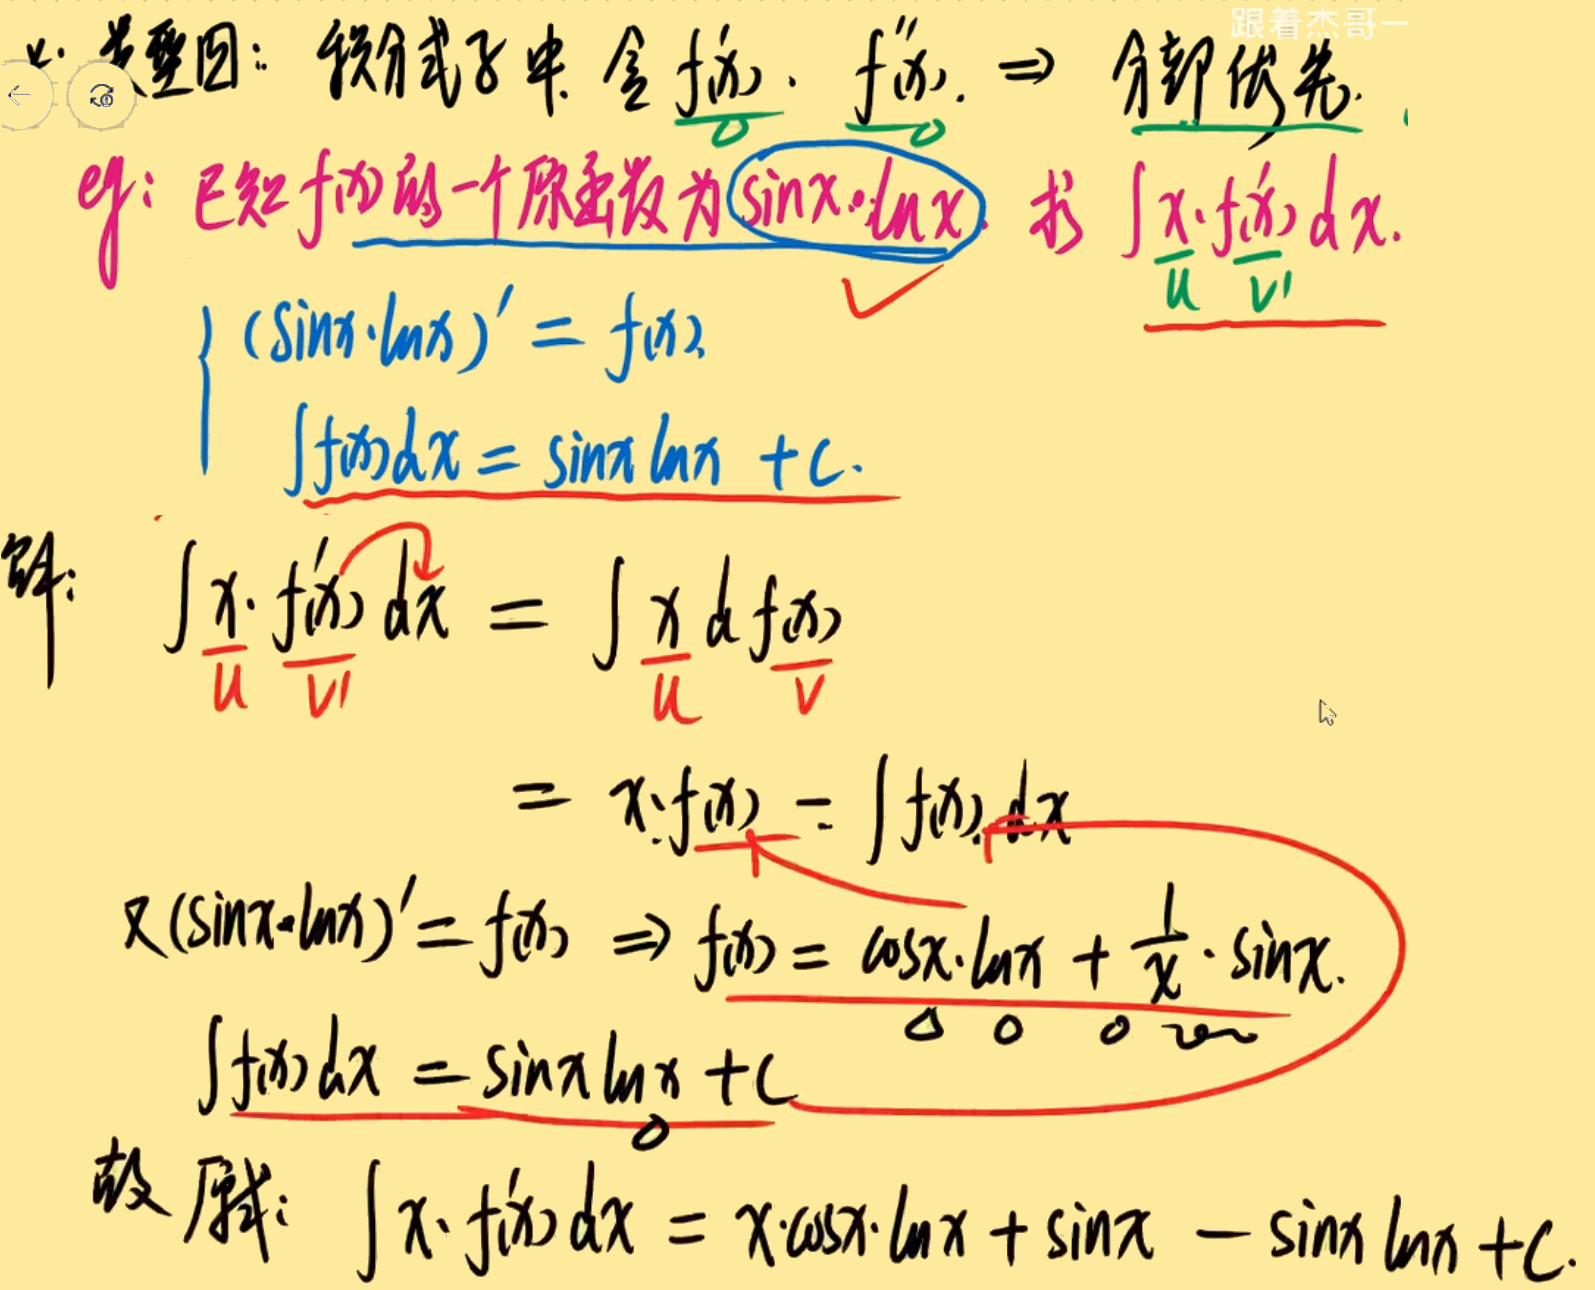 跟着杰哥一
类型四: 积分式子中含 f'(x). f''(x). ⇒ 分部优先.
eg: 已知 f(x) 的一个原函数为 sinx·lnx. 求 ∫x·f'(x)dx.
u v'
(sinx·lnx)' = f(x).
∫f(x)dx = sinx lnx + C.
解: ∫x·f'(x)dx = ∫x d f(x)
u v' u v
= x·f(x) - ∫f(x)dx
又(sinx·lnx)' = f(x) ⇒ f(x) = cosx·lnx + 1/x · sinx.
∫f(x)dx = sinx lnx + C
故原式: ∫x·f'(x)dx = x·cosx·lnx + sinx - sinx lnx + C.